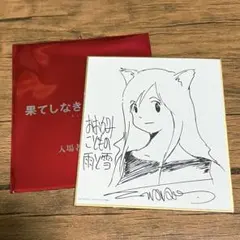 果てしなき
入場者
おおかみ
こどもの
雨と雪